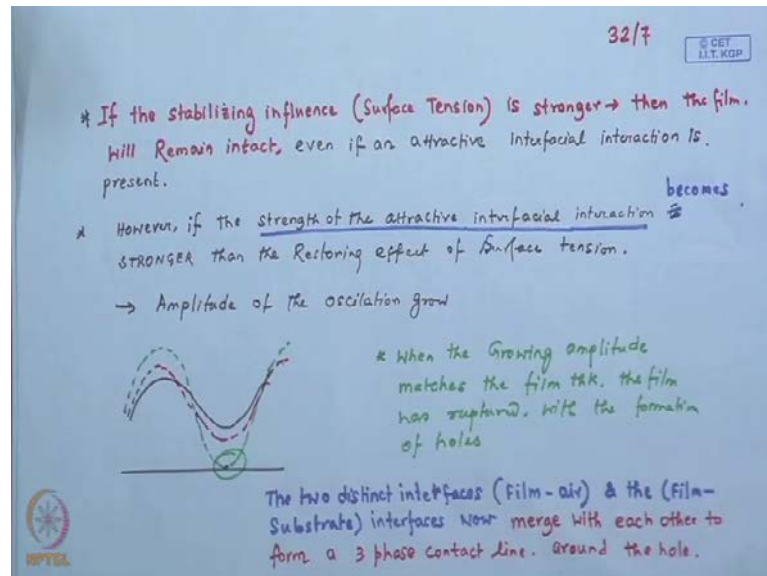 32/7
© CET
I.I.T. KGP
* If the stabilizing influence (Surface Tension) is stronger → then the film.
Will Remain intact, even if an attractive Interfacial interaction is.
present.
becomes
* However, if the strength of the attractive interfacial interaction
STRONGER than the Restoring effect of Surface tension.
→ Amplitude of the oscilation grow
* When the Growing amplitude
matches the film thk. the film
has ruptured. with the formation
of holes
The two distinct interfaces (Film-air) & the (Film-
Substrate) interfaces Now merge with each other to
form a 3 phase contact line. around the hole.
NPTEL